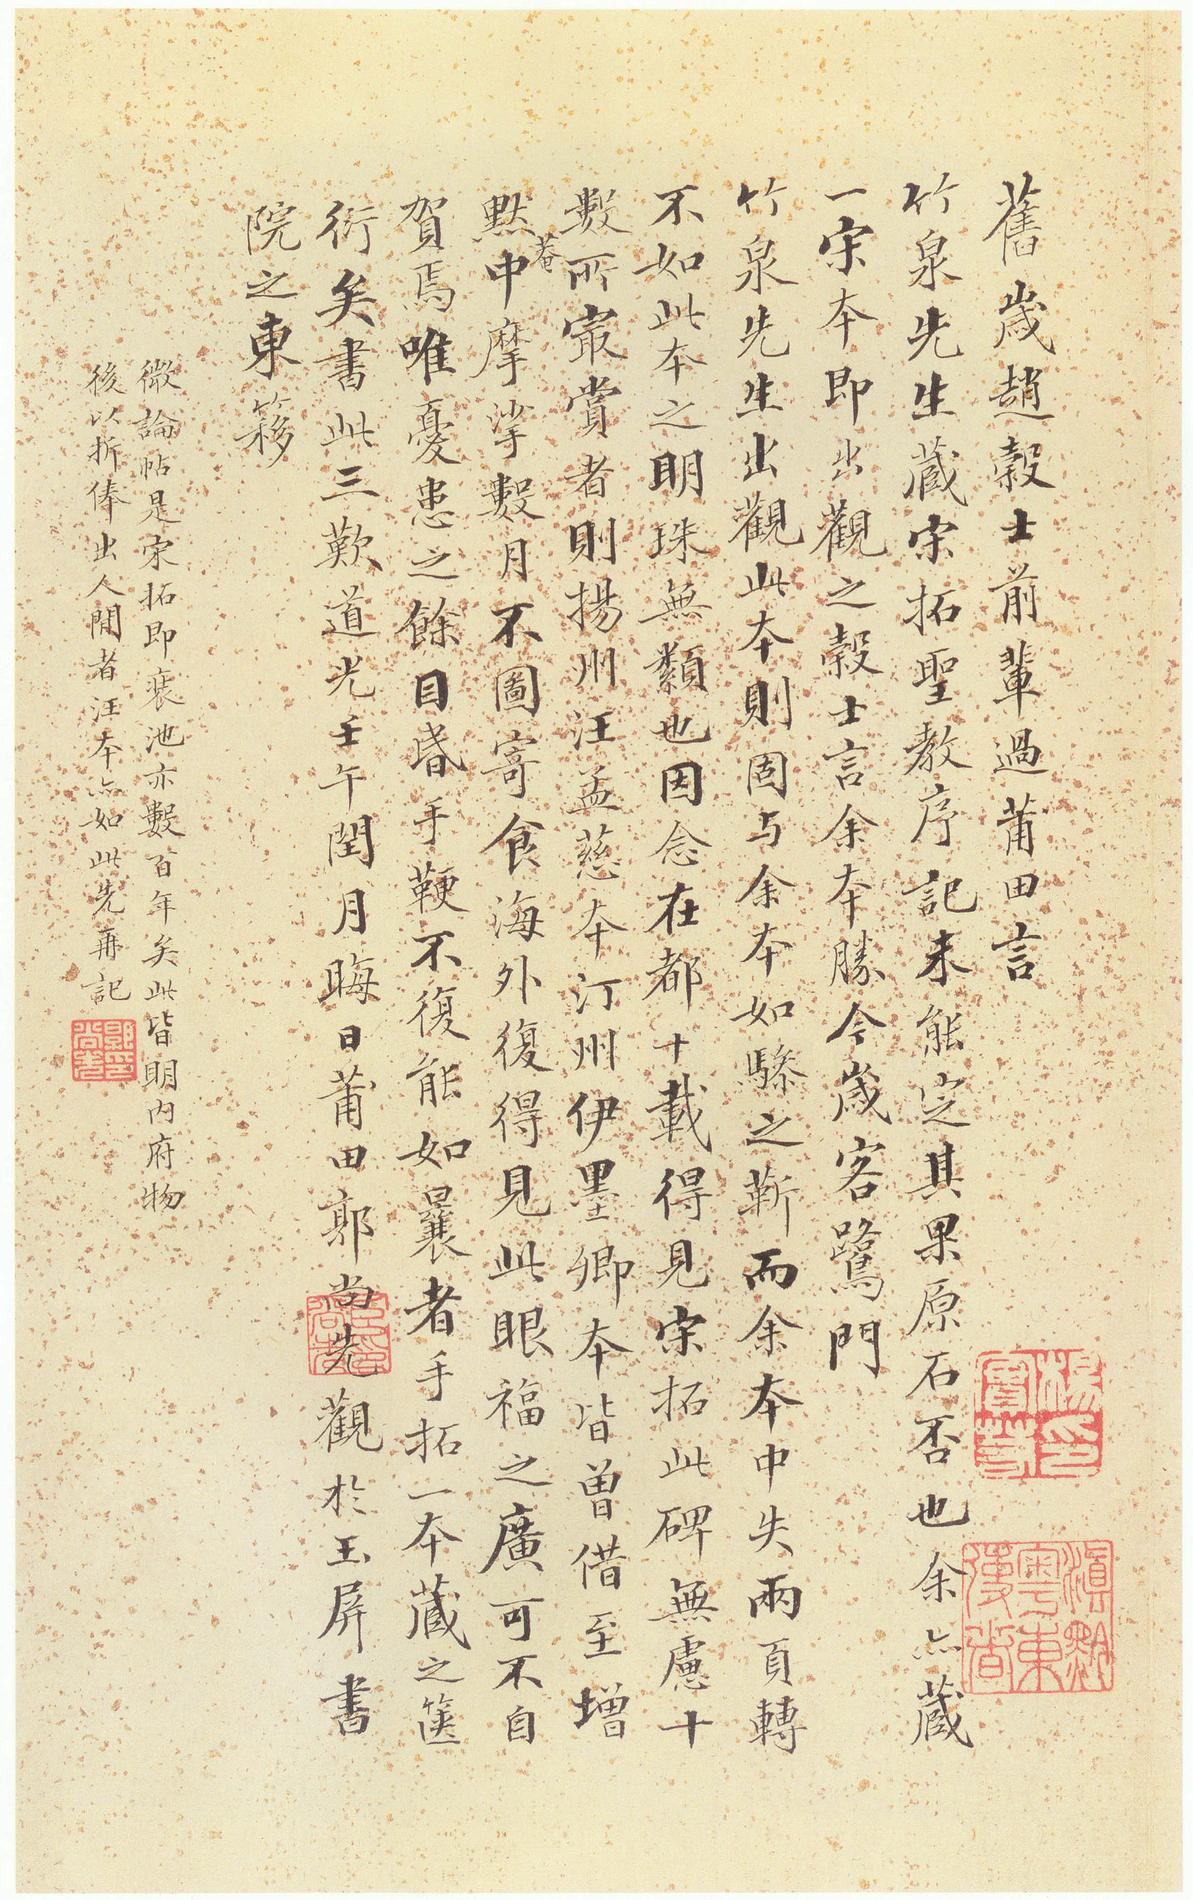 舊歲趙穀士前輩過莆田言
竹泉先生藏宋拓聖教序記未能定其果原石否也余亦藏
一宋本即出觀之穀士言余本勝今歲客鷺門
竹泉先生出觀此本則固與余本如驂之靳而余本中失兩頁轉
不如此本之明珠無纇也因念在都十載得見宋拓此碑無慮十
數所寂賞者則揚州汪孟慈本汀州伊墨卿本皆曾借至增
默菴中摩挲數月不圖寄食海外復得見此眼福之廣可不自
賀焉唯憂患之餘目昏手鞕不復能如曩者手拓一本藏之篋
衍矣書此三歎道光壬午閏月晦日莆田郭尚先觀於玉屏書
院之東簃
微論帖是宋拓即裝池亦數百年矣此皆明內府物
後以折俸出人間者汪本亦如此先再記